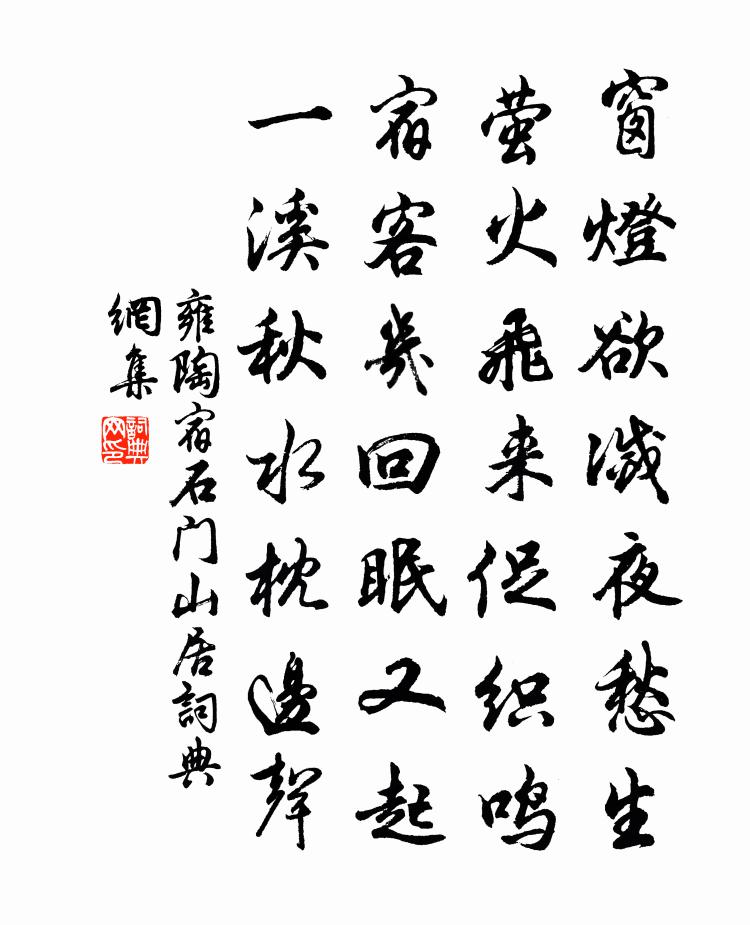 窗燈欲滅夜愁生
萤火飛来促织鸣
宿客幾回眠又起
一溪秋水枕邊聲
雍陶宿石门山居詞典
網集
詞典
网印